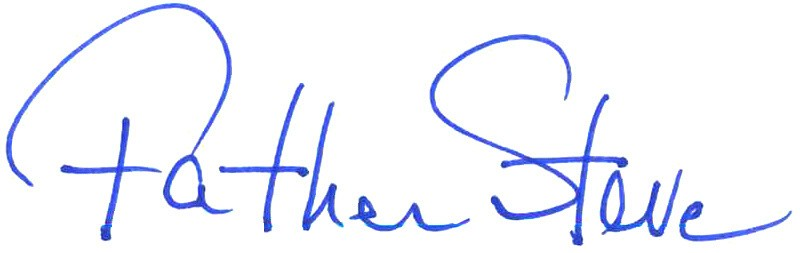 Father Steve